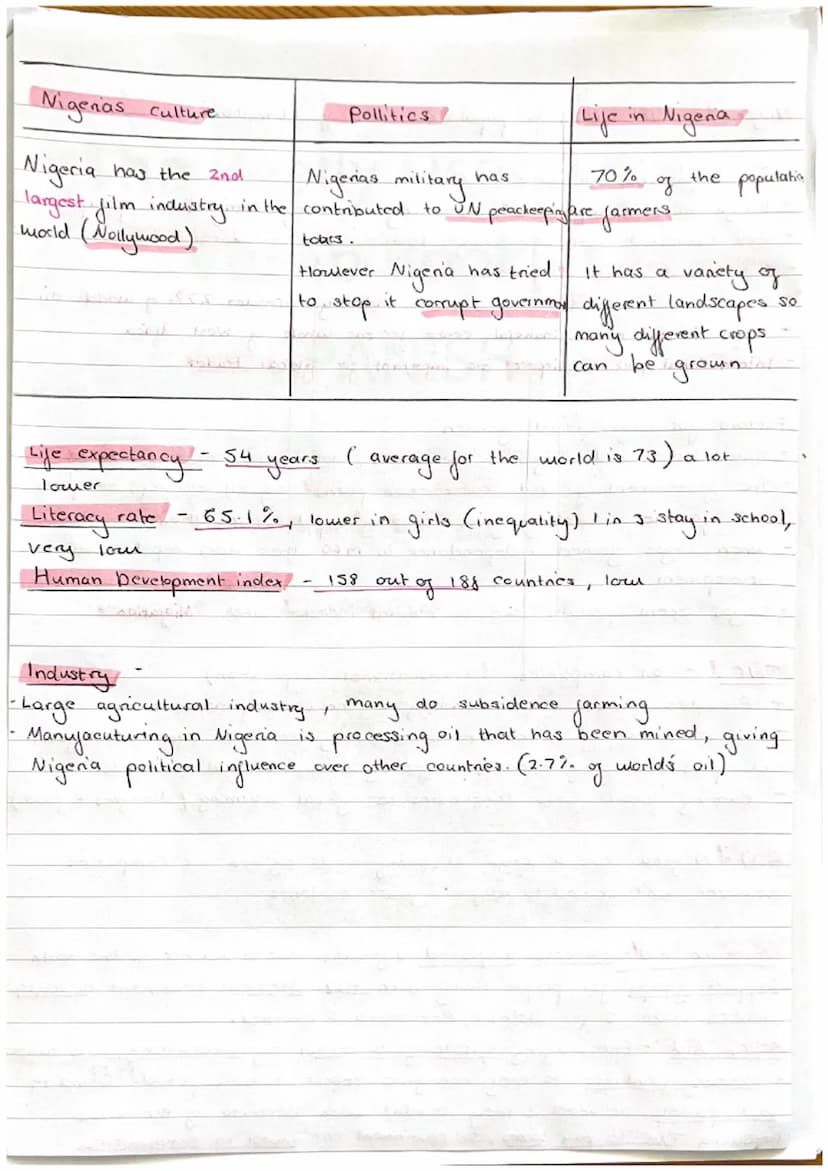 Nigerias culture
Nigeria has the 2nd
largest film industry in the
world (Nollywood)
Pollitics
Nigerias military has
contributed to UN peackeeping
tours.
However Nigeria has tried
to stop it corrupt governmen
Life in Nigeria
70% of the populatio
are farmers
It has a variety of
different landscapes so
many different crops
can be grown
Life expectancy - 54 years ( average for the world is 73) a lot
lower
Literacy rate - 65.1%, lower in girls (inequality) 1 in 3 stay in school,
very low
Human Development index - 158 out of 188 countries, low
Industry -
- Large agricultural industry, many do subsidence farming
- Manufacuturing in Nigeria is processing oil that has been mined, giving
Nigeria political influence over other countries. (2.7% of world's oil)